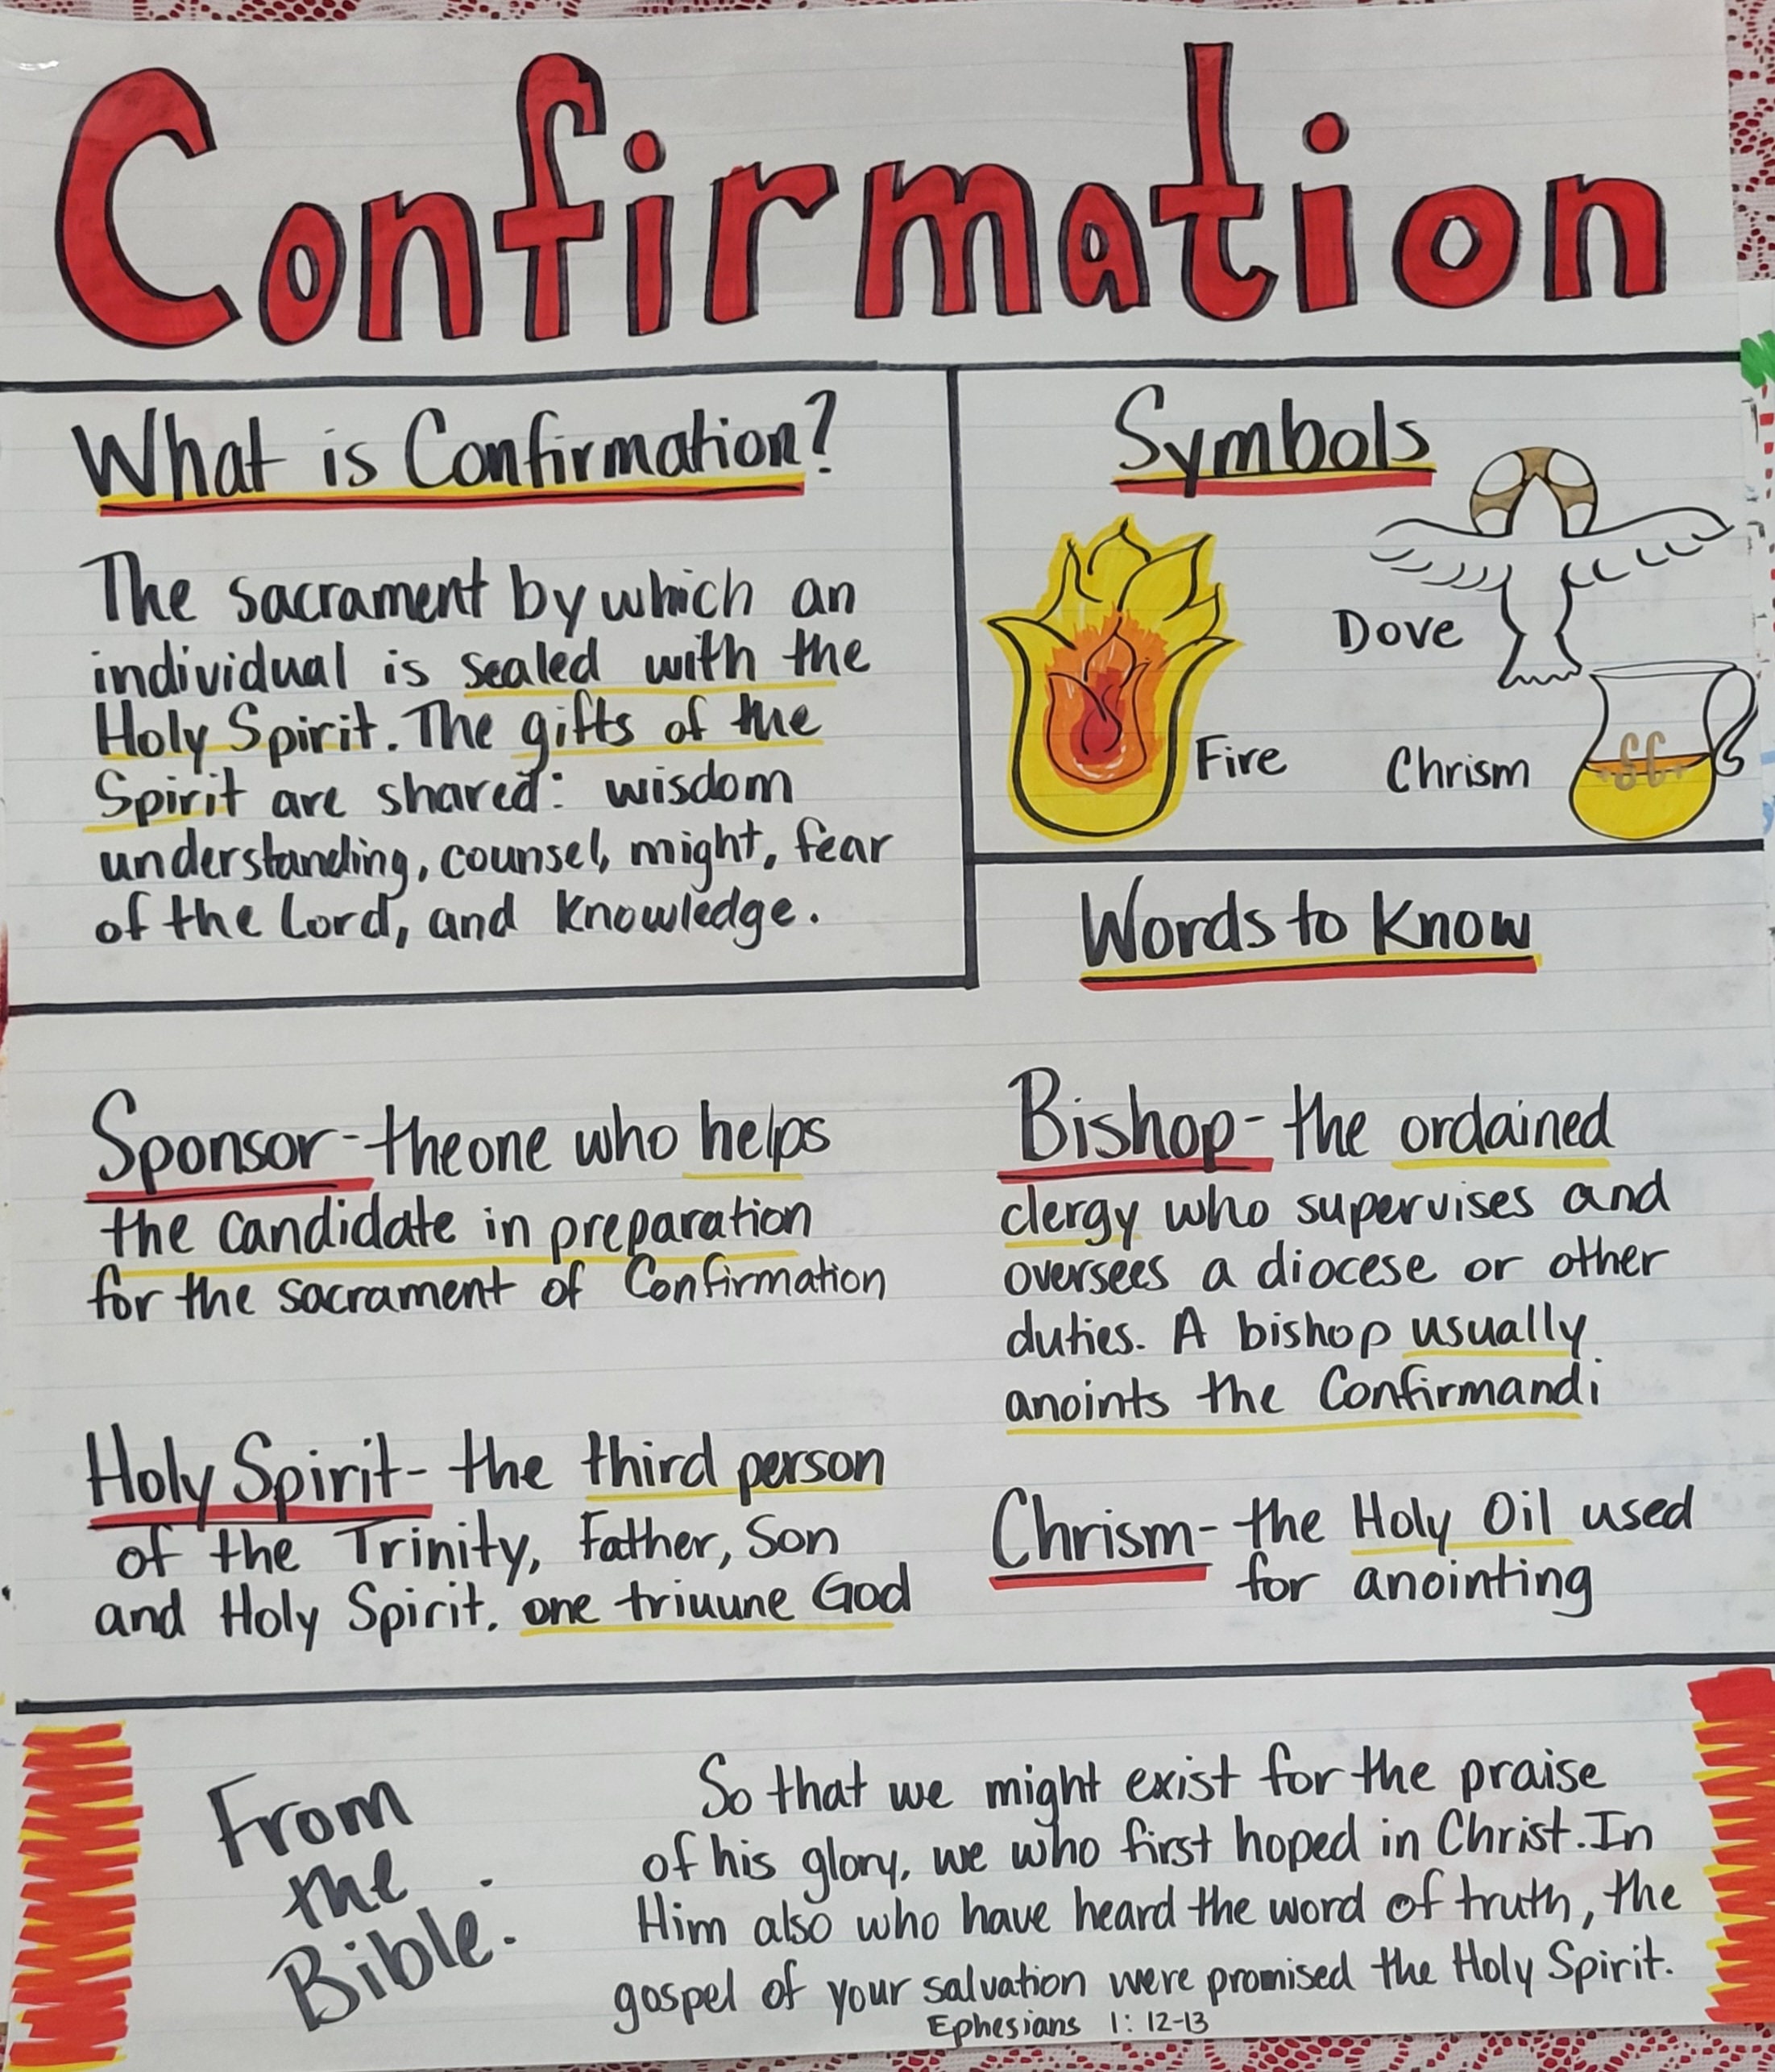 Confirmation
What is Confirmation?
The sacrament by which an
individual is sealed with the
Holy Spirit. The gifts of the
Spirit are shared: wisdom
understanding, counsel, might, fear
of the Lord, and Knowledge.
Symbols
Dove
Fire
Chrism
SC
Words to Know
Sponsor - the one who helps
the candidate in preparation
for the sacrament of Confirmation
Holy Spirit - the third person
of the Trinity, Father, Son
and Holy Spirit. one triuune God
Bishop - the ordained
clergy who supervises and
oversees a diocese or other
duties. A bishop usually
anoints the Confirmandi
Chrism - the Holy Oil used
for anointing
From
the
Bible:
So that we might exist for the praise
of his glory, we who first hoped in Christ. In
Him also who have heard the word of truth, the
gospel of your salvation were promised the Holy Spirit.
Ephesians 1: 12-13